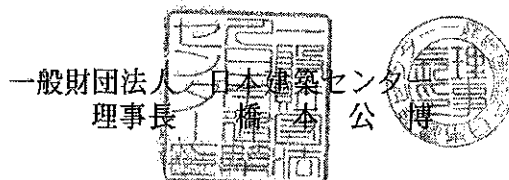 一般財団法人 日本建築センター
理事長 橋本公博